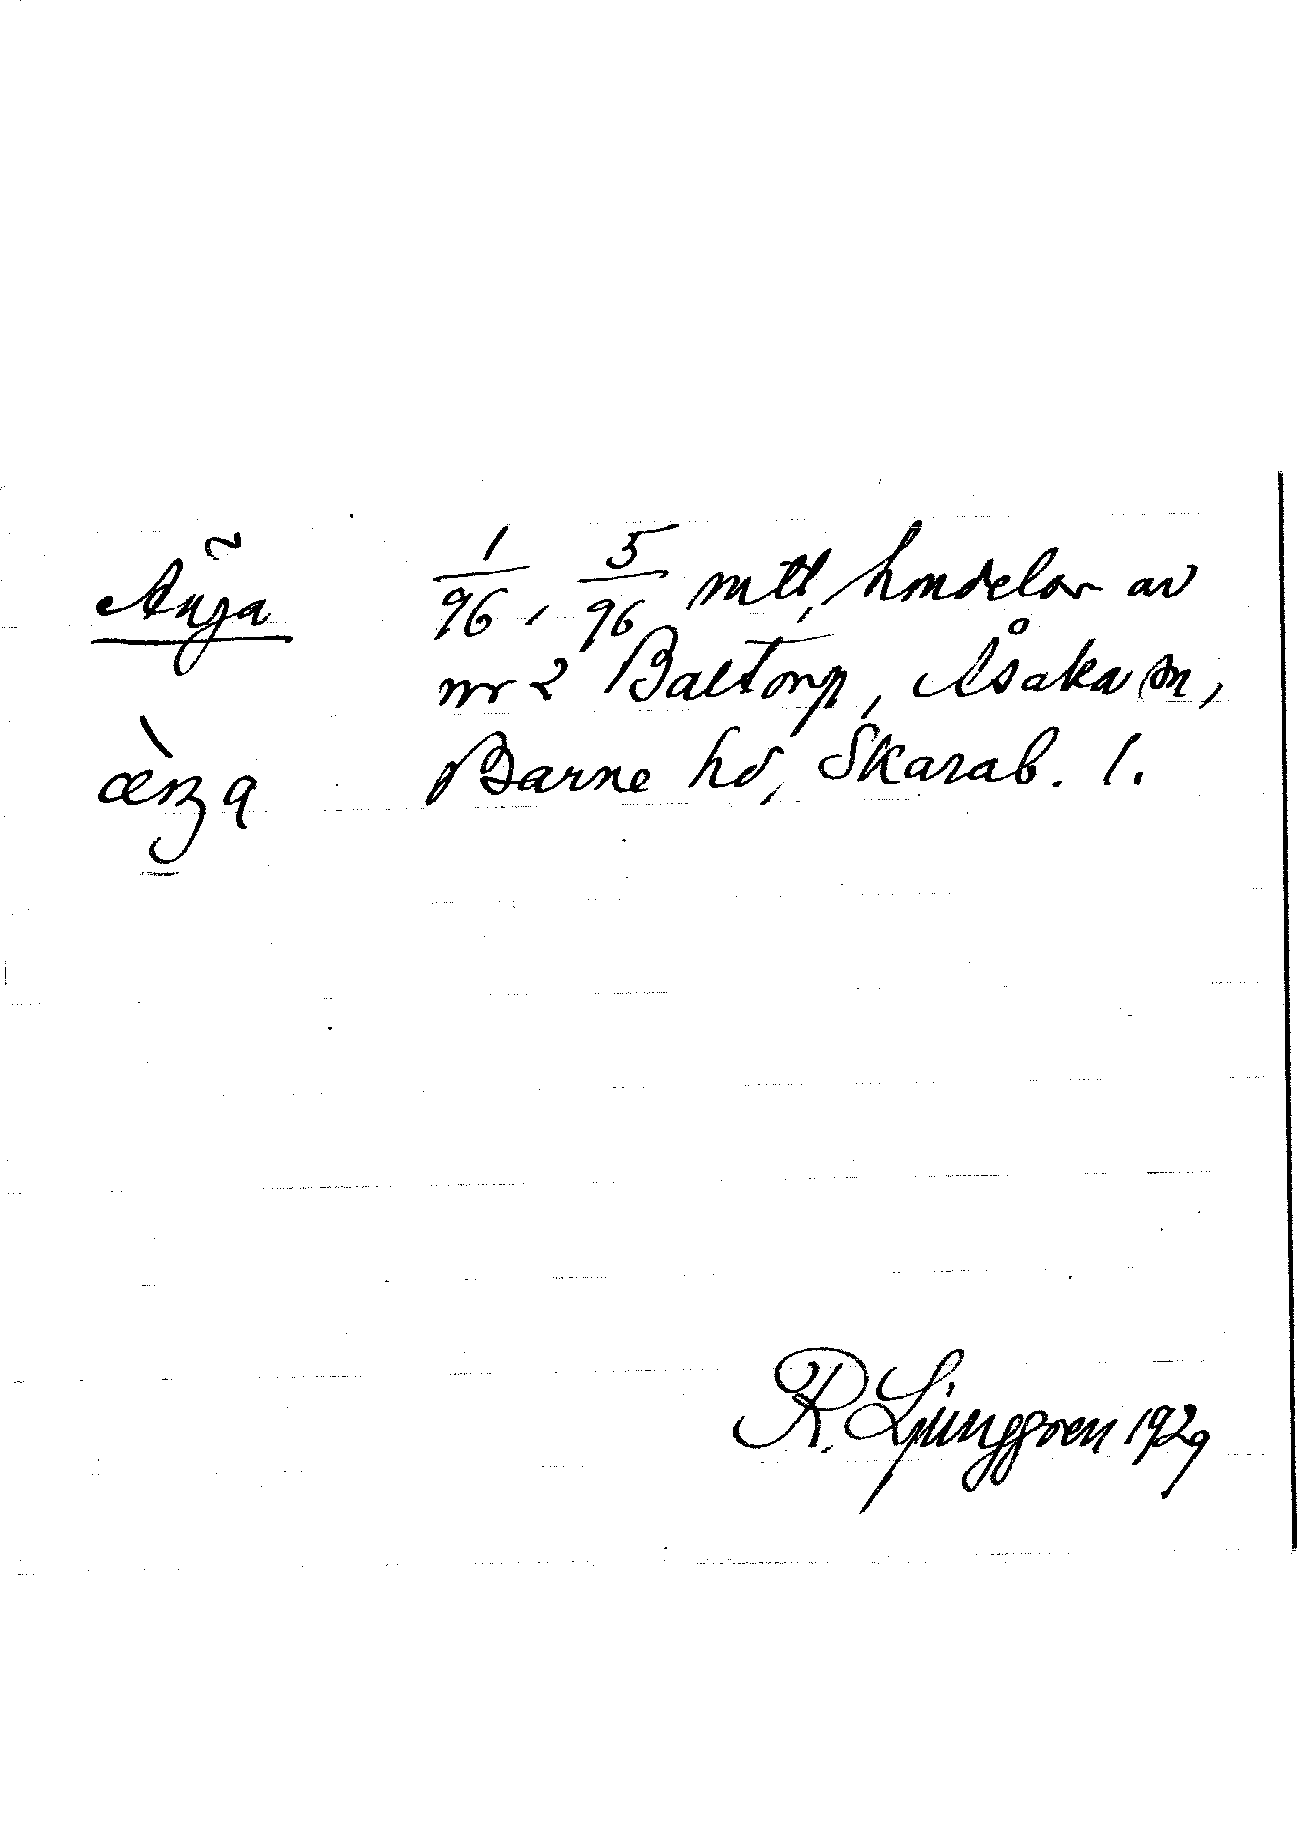 Änga
1/96, 5/96 mtl, hmdelar av
nr 2 Baltorp, Åsaka sn,
Barne hd, Skarab. l.
R. Ljunggren 1929